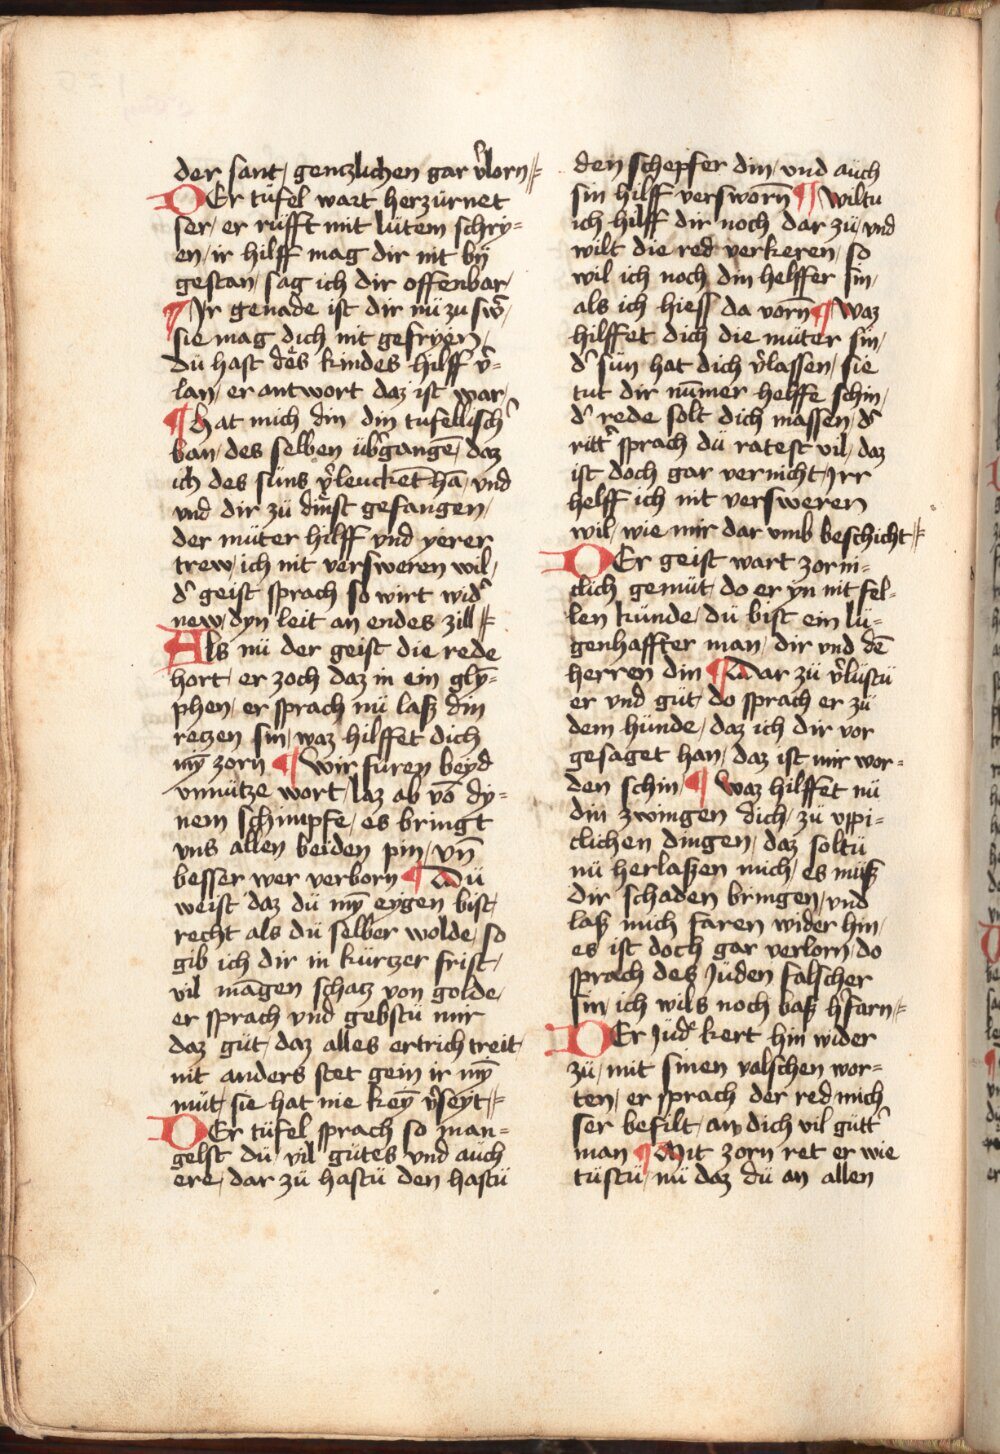 der sant / genczlichen gar v̉lorn //
DEr tüfel wart herzürnet
ser / er rüfft mit lütem schry=
en / ir hilff mag dir nit bÿ
gestan / sag ich dir offenbar /
¶ Ir genade ist dir nü zu swr̄ /
sie mag dich nit gefryen /
dü hast des kindes hilff v̉=
lan / er antwort daz ist war /
¶ hat mich din din tufellisch̉
ban / des selben üb̉gangē / daz
ich des süns v̉leucket hā / vnd
vnd dir zü dinst gefangen /
der müter hilff vnd yerer
trew / ich nit versweren wil /
d̉ geist sprach so wirt wid̉
new / dyn leit an endes zill //
Als nü der geist die rede
hort / er zoch daz in ein gly=
phen / er sprach nü laß din
reczen sin / waz hilffet dich
mȳ zorn ¶ wir furen beyd
vnnütze wort / laz ab vō dy=
nem schimpfe / es bringt
vns allen beiden pin / vn̄
besser wer verborn ¶ Dü
weist daz dü my eygen bist /
recht als dü selber wolde / so
gib ich dir in kürczer frist /
vil māgen schacz von golde /
er sprach vnd gebstu mir
daz güt / daz alles ertrich treit
nit anders stet gein ir mȳ
müt / sie hat nie keȳ v̉seyt //
DEr tüfel sprach so man=
gelst dü / vil gütes vnd auch
ere / dar zü hastü den hastü
den schepfer din / vnd auch
sin hilff versworn̄ ¶ wiltu
ich hilff dir noch dar zü / vnd
wilt die red verkeren / so
wil ich noch din helffer sin /
als ich hiess da vorn̄ ¶ Waz
hilffet dich die müter sin /
d̉ sün hat dich v̉lassen / sie
tut dir nūmer helffe schin /
d̉ rede solt dich massen / d̉
ritt̉ sprach dü ratest vil / daz
ist doch gar vernicht / Irr
helff ich nit versweren
wil / wie mir dar vmb beschicht //
DEr geist wart zorni=
clich gemüt / do er yn nit fel=
len künde / dü bist ein lü=
genhaffter man / dir vnd dē
herren din ¶ Dar zü v̉lüstü
er vnd güt / do sprach er zü
dem hünde / daz ich dir vor
gesaget han / daz ist mir wor=
den schin / ¶ waz hilffet nü
din zwingen dich / zü vppi=
clichen dingen / daz soltü
nü herlaßen mich / es müß
dir schaden bringen / vnd
laß mich faren wider hin /
es ist doch gar verlorn / do
sprach des Jüden falscher
sin / ich wils noch baß h̉farn //
DEr Jüde kert hin wider
zü / mit sinen valschen wor=
ten / er sprach der red mich
ser befilt / an dich vil gütt̉
man ¶ Mit zorn ret er wie
tüstü / nü daz dü an allen